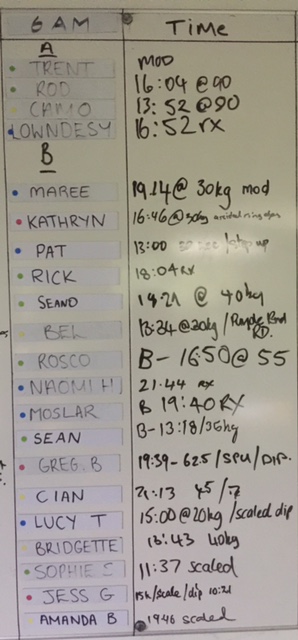 6AM Time
A
TRENT MOD
ROD 16:04 @90
CAMO 13:52 @90
LOWNDESY 16:52 RX
B
MAREE 19.14 @ 30kg mod
KATHRYN 16:46 @30kg
PAT 13:00 /step up
RICK 18:04 RX
SEANO 19:21 @ 40kg
BEL 13:24 @20kg / Purple Band
ROSCO B- 16:50 @ 55
NAOMI H 21.44 RX
MOSLAR B 19:40 RX
SEAN B-13:18/35kg
GREG.B 19:39-62.5/SPU/DIP.
CIAN 21:13 45/
LUCY T 15:00 @20kg /scaled dip
BRIDGETTE 13:43 40kg
SOPHIE S 11:37 scaled
JESS G 15k/scale/dip 10:21
AMANDA B 19:46 scaled